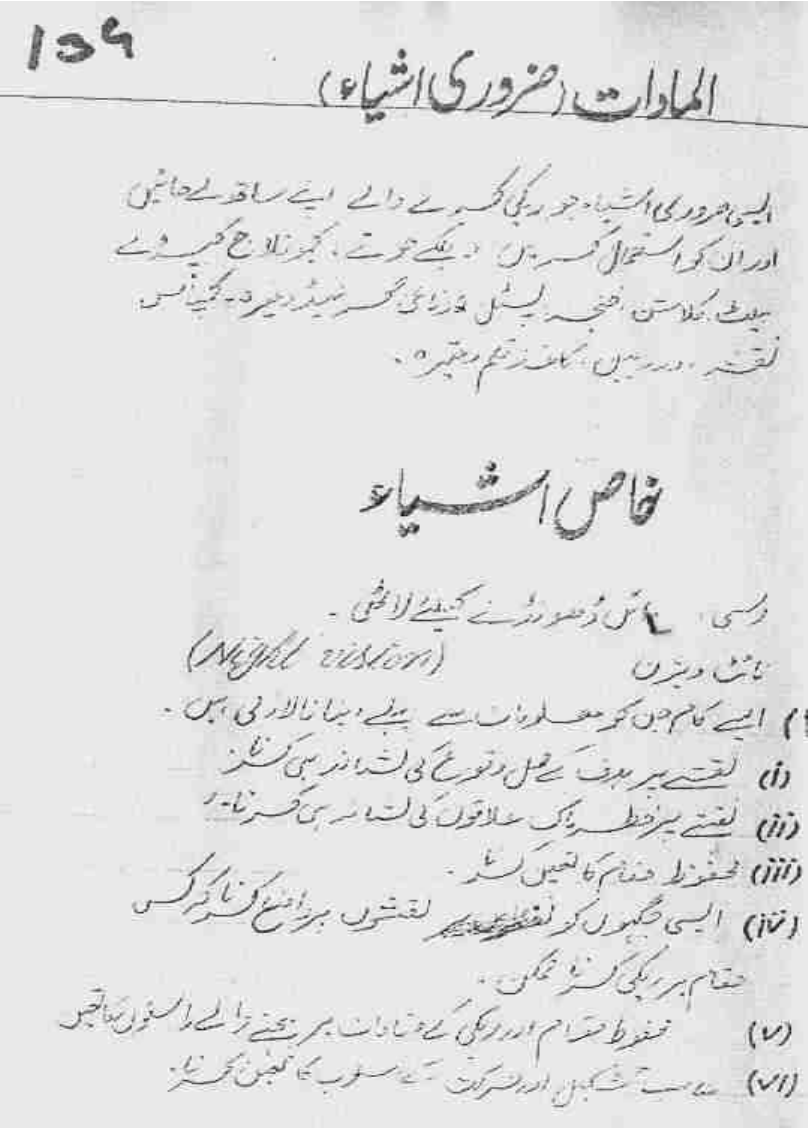 139
المادات (ضروری اشیاء)
ایسی ضروری اشیاء جو ریکی کرنے والے اپنے ساتھ لے جائیں
اور ان کو استعمال کریں۔ ہلکے جوتے،
بیلٹ، کلاشن، خنجر، پسٹل، گرنیڈ وغیرہ۔ کمپاس
نقشہ، دوربین، کاغذ قلم وغیرہ۔
خاص اشیاء
رسی، مائن ڈھونڈنے کیلئے لاٹھی۔
نائٹ ویژن (Night vision)
ایسے کام جن کو معلومات سے پہلے بنانا لازمی ہیں۔
(i) نقشے پر ہدف کے محل وقوع کی نشاندہی کرنا۔
(ii) نقشے پر خطرناک علاقوں کی نشاندہی کرنا۔
(iii) محفوظ مقام کا تعین کرنا۔
(iv) ایسی جگہوں کو نقشوں پر واضع کرنا کہ کس
مقام پر ریکی کرنا ممکن۔
(v) محفوظ مقام اور ریکی کے مقامات پر جانے والے راستوں کا تعین
(vi) تشکیل اور حرکت کے اسلوب کا تعین کرنا۔